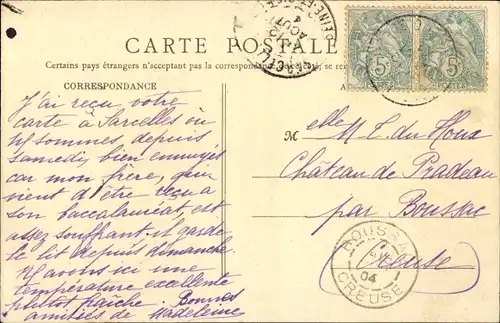 CARTE POSTALE
Certains pays étrangers n'acceptant pas la correspondance
CORRESPONDANCE
J'ai reçu votre
carte à Sarcelles où
ns sommes depuis
Samedi, bien ennuyés
car mon frère, qui
vient d'être reçu à
son baccalauréat, est
assez souffrant et garde
le lit depuis dimanche.
Ns avons ici une
température excellente
plutôt fraîche. Bonnes
amitiés de Madeleine
Melle M. L. du Houx
Château de Pradeau
par Boussac
Creuse
5
5
POSTES
BOUSSAC
04
CREUSE